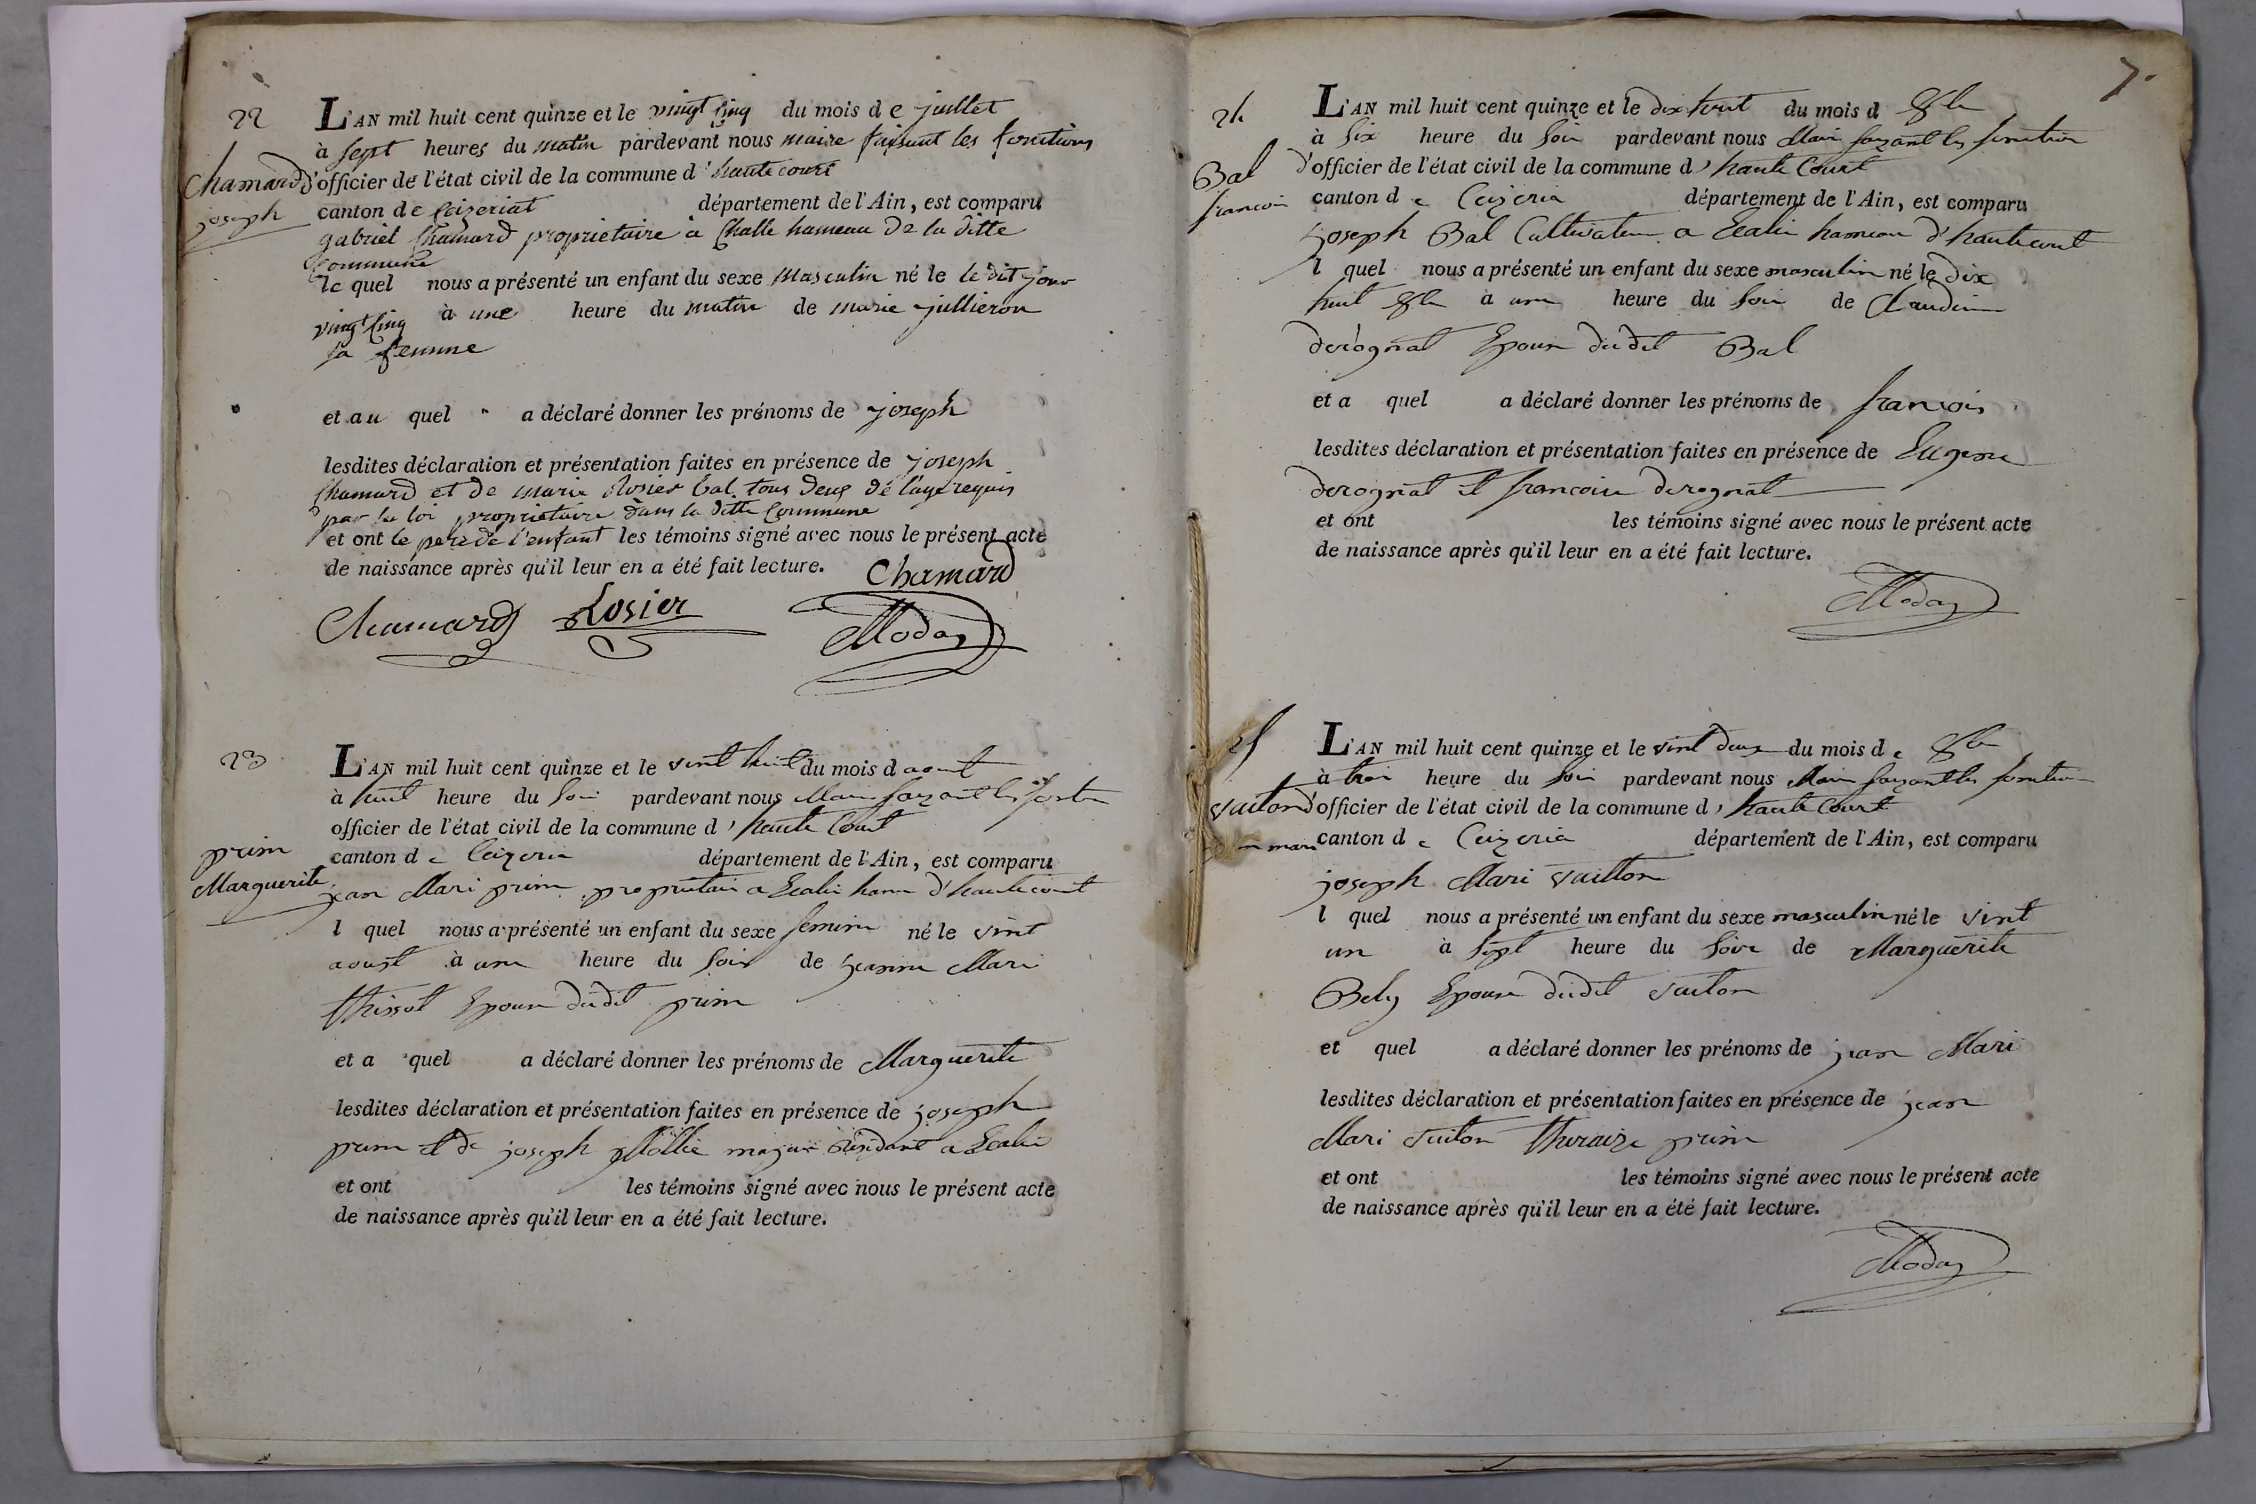 22
Chamard
joseph
L'AN mil huit cent quinze et le vingt cinq du mois de juillet
à sept heures du matin pardevant nous maire faisant les fonctions
d'officier de l'état civil de la commune d'hautecourt
canton de Ceizeriat département de l'Ain, est comparu
gabriel Chamard proprietaire à Challe hameau de la ditte
Commune
le quel nous a présenté un enfant du sexe masculin né le le dit jour
vingt cinq à une heure du matin de marie jullieron
sa femme
et au quel a déclaré donner les prénoms de joseph
lesdites déclaration et présentation faites en présence de joseph
Chamard et de marie Rosier bal tous deux de l'age requis
par la loi proprietaire dans la ditte Commune
et ont le pere de l'enfant les témoins signé avec nous le présent acte
de naissance après qu'il leur en a été fait lecture.
Chamard
Chamard Rosier Moday
23
prim
Marguerite
L'AN mil huit cent quinze et le vint huit du mois d aout
à huit heure du soir pardevant nous Maire fayzant les
officier de l'état civil de la commune d'haute Court
canton de Ceizeria département de l'Ain, est comparu
jean Mari prim propriétair a ham d'hautecourt
l quel nous a présenté un enfant du sexe feminin né le vint
aoust à une heure du soir de jeanne Mari
thissot Epouse dudit prim
et a quel a déclaré donner les prénoms de Marguerite
lesdites déclaration et présentation faites en présence de joseph
prim et de joseph Mollie majeur residant a
et ont les témoins signé avec nous le présent acte
de naissance après qu'il leur en a été fait lecture.
7.
24
Bal
francois
L'AN mil huit cent quinze et le dix huit du mois d 8bre
à six heure du soir pardevant nous Maire fayzant les fonction
d'officier de l'état civil de la commune d'haute Court
canton de Ceizeria département de l'Ain, est comparu
joseph Bal Cultivateur a hameau d'hautecourt
l quel nous a présenté un enfant du sexe masculin né le dix
huit 8bre à une heure du soir de Claudine
derognat Epouse dudit Bal
et a quel a déclaré donner les prénoms de francois
lesdites déclaration et présentation faites en présence de Eugene
derognat et francoise derognat
et ont les témoins signé avec nous le présent acte
de naissance après qu'il leur en a été fait lecture.
Moday
25
vuiton
jean mari
L'AN mil huit cent quinze et le vint deux du mois de 8bre
à troi heure du soir pardevant nous Maire fayzant les fonction
d'officier de l'état civil de la commune d'haute Court
canton de Ceizeria département de l'Ain, est comparu
joseph Mari vuitton
l quel nous a présenté un enfant du sexe masculin né le vint
un à sept heure du soire de Marguerite
Bely Epouse dudit vuiton
et quel a déclaré donner les prénoms de jean Mari
lesdites déclaration et présentation faites en présence de jean
Mari vuiton theraize prim
et ont les témoins signé avec nous le présent acte
de naissance après qu'il leur en a été fait lecture.
Moday